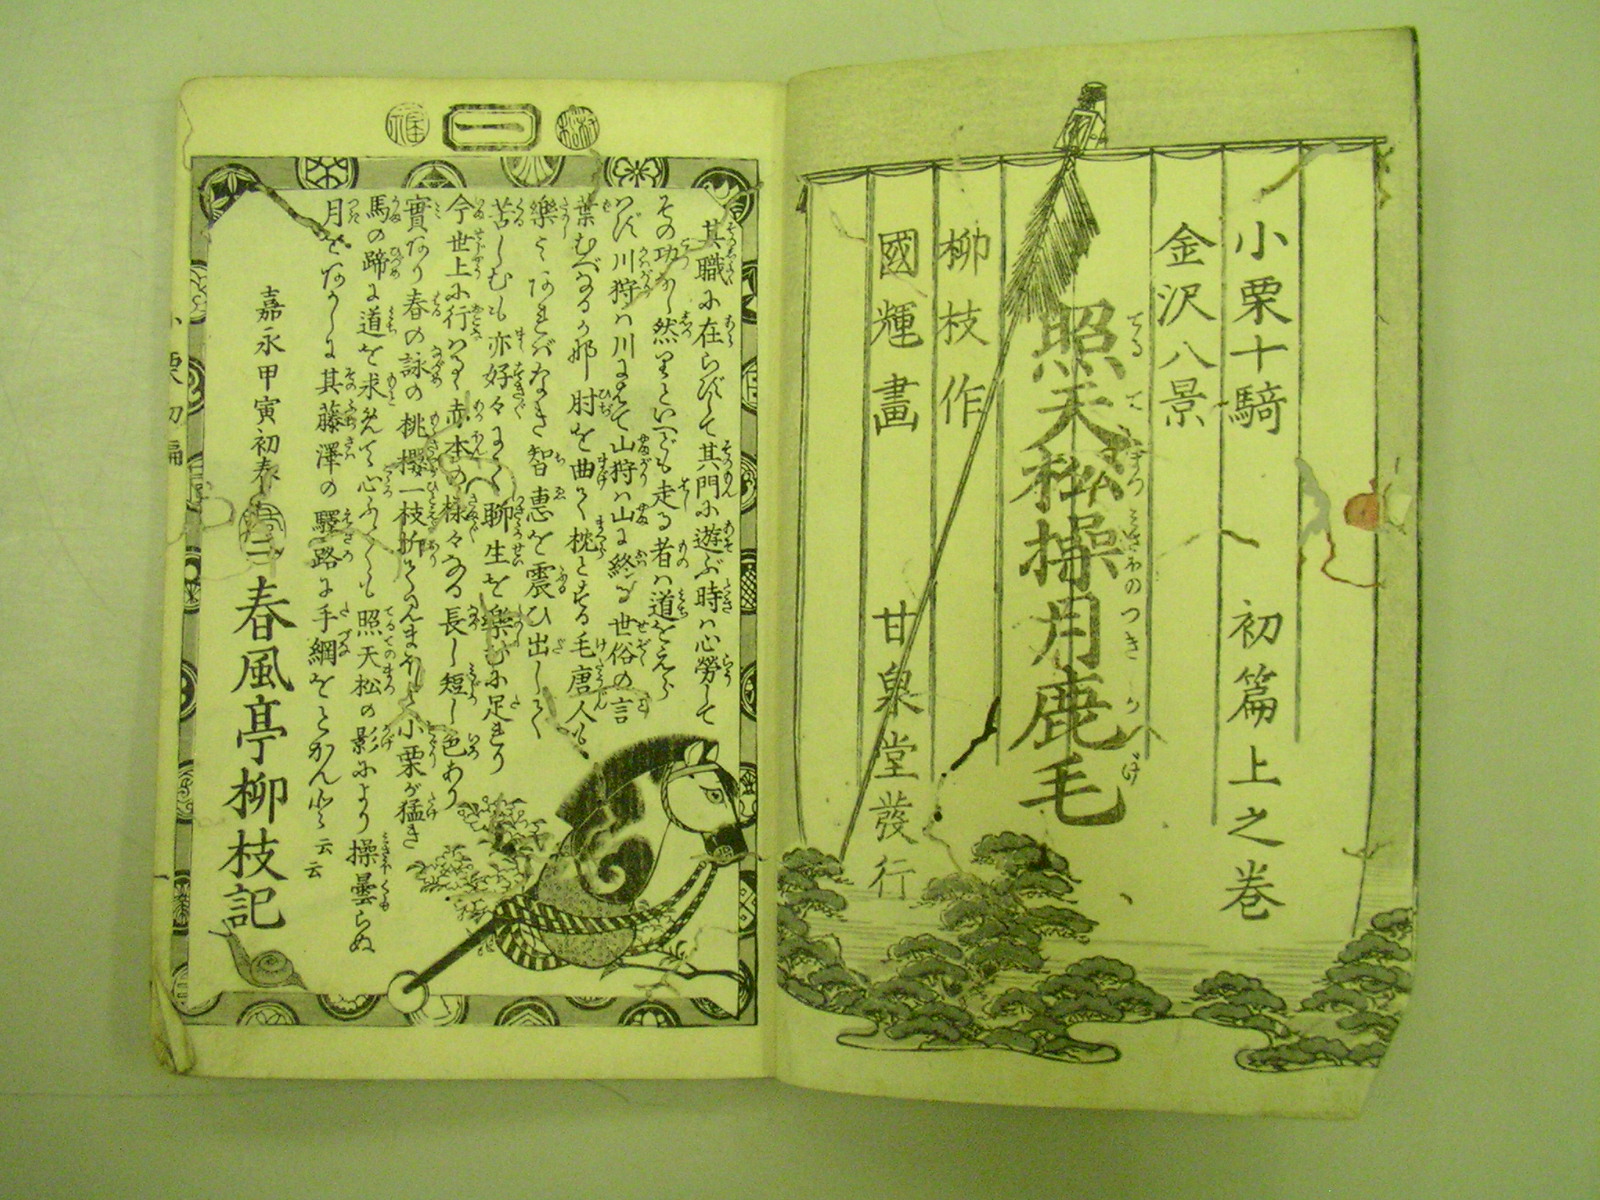 小栗十騎 初篇上之巻
金沢八景
照天松操月鹿毛
てるてまつみさほのつきかげ
柳枝作
國輝畫 甘泉堂發行
一
其職に在らずして其門に遊ぶ時ハ心勞して
その功なし然りといへども走る者ハ道をえら
はず川狩ハ川にはて山狩ハ山に終る世俗の言
葉むべなるか那肘を曲て枕とする毛唐人も
樂となれバなき智惠を震ひ出して
苦しむも亦好々にて聊生を樂むに足れり
今世上に行はるゝ赤本の様々なる長し短し色あり
實なり春の詠の桃櫻一枝折
小栗が猛き
馬の蹄に道を求
照天松の影により操曇らぬ
月を
其藤澤の驛路に手綱を
云云
嘉永甲寅初春
春風亭柳枝記
小栗初編